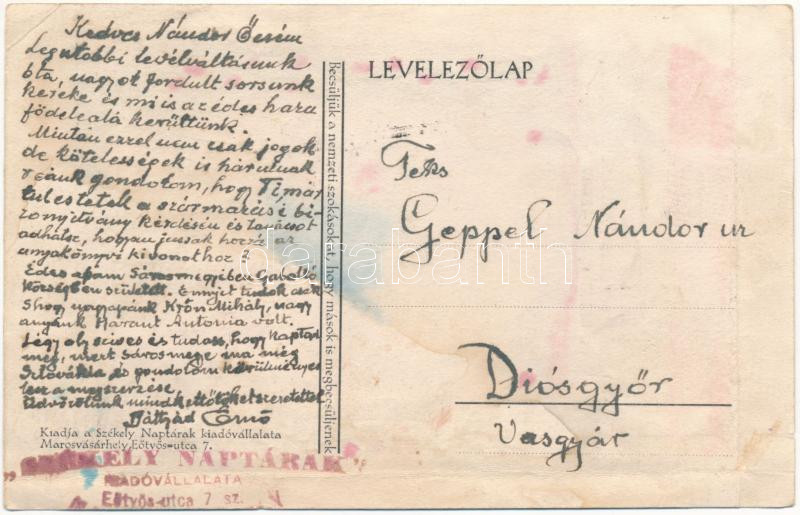 Kedves Nándor Öcsém
Legutóbbi levélváltásunk
óta, nagyot fordult sorsunk
kereke és mi is az édes haza
födele alá kerültünk.
Miután ezzel nem csak jogok
de kötelességek is hárulnak
reánk gondolom, hogy Ti már
túl estetek a származási bi-
zonyítvány kérdésén és tanácsot
adhatsz, hogyan jussak hozzá az
anyakönyvi kivonathoz?
Édes apám Sárosmegyében
községben született. Ennyit tudok csak
s hogy nagyapánk Mihály, nagy
anyánk Antonia volt.
Légy oly szíves és tudass, hogy kaptad
meg, mert Sárosmegye ma még
Szlovákia és gondolom körülményes
lesz a megszerzése.
Üdvözlünk mindkettőtöket szeretettel
Ernő
Kiadja a Székely Naptárak kiadóvállalata
Marosvásárhely, Eötvös-utca 7.
„SZÉKELY NAPTÁRAK”
KIADÓVÁLLALATA
Eötvös-utca 7 sz.
Becsüljük a nemzeti szokásokat, hogy mások is megbecsüljenek
LEVELEZŐLAP
Teks
Geppel Nándor úr
Diósgyőr
Vasgyár
darabanth